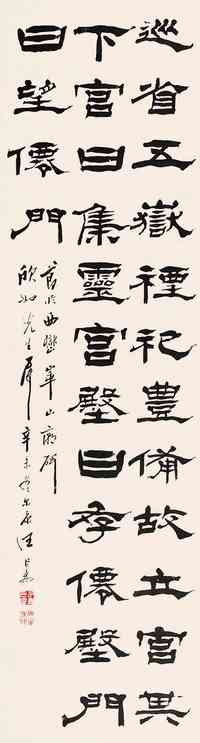 巡省五嶽禋祀豊備故立宮其
下宮曰集靈宮壂曰存僊壂門
曰望僊門
西嶽華山廟碑
欣如先生屬辛未冬汪